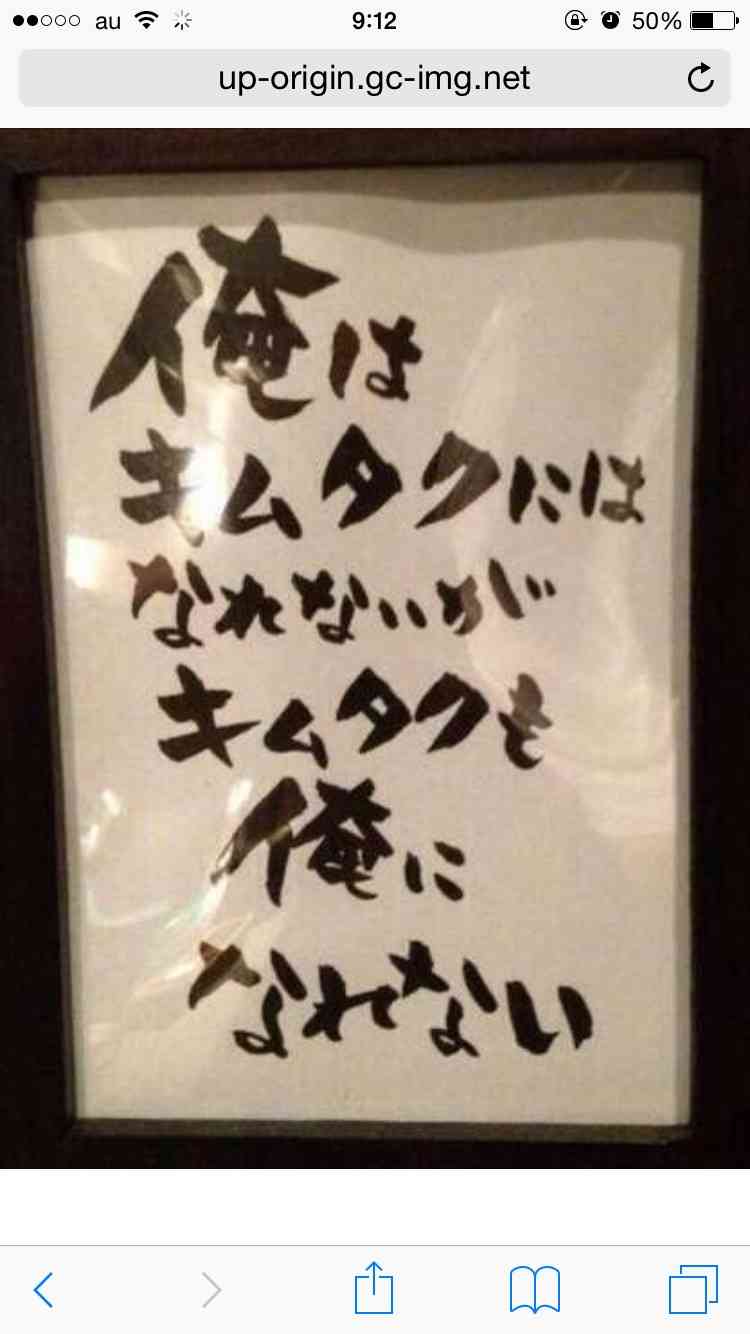 au 9:12 50%
up-origin.gc-img.net
俺は
キムタクには
なれないが
キムタクも
俺に
なれない